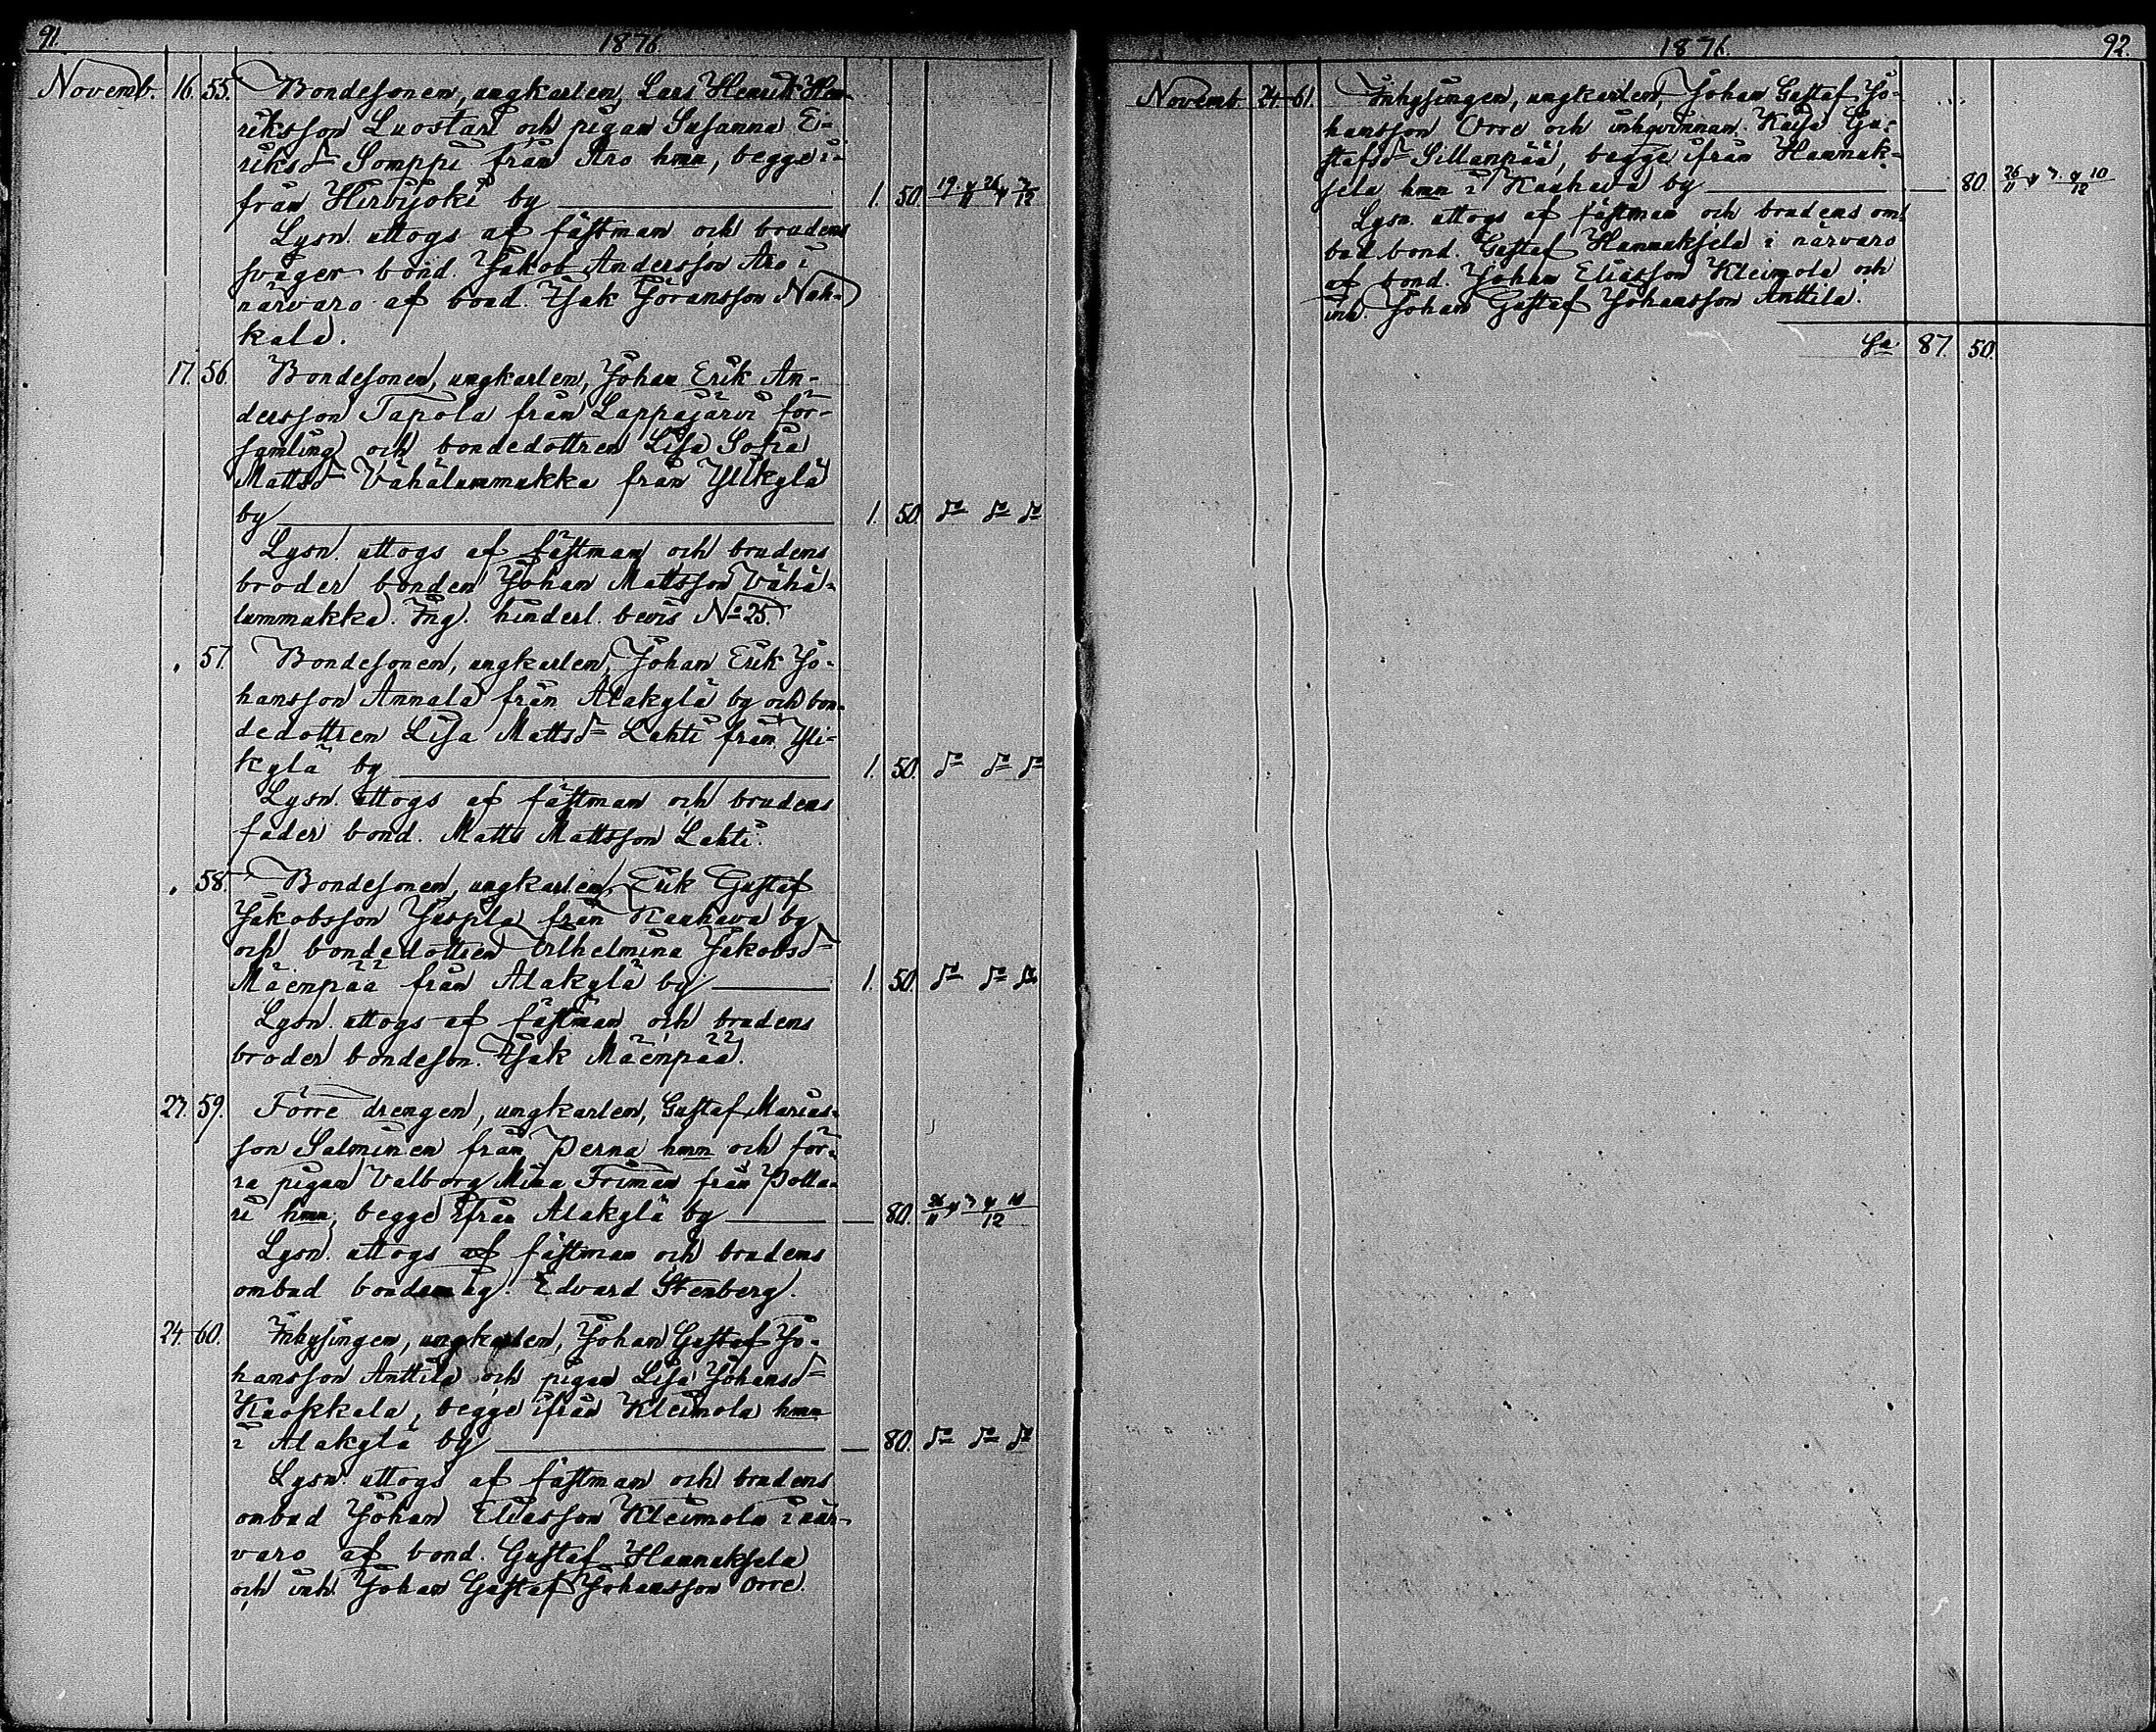 91. 1876
Novemb. 16. 55. Bondesonen, ungkarlen, Lars Henrik Hen-
riksson Luostari och pigan Susanna E-
riksd:r Somppi från Aro hmn, begge i-
från Hirvijoki by 1. 50. 19. & 26/11 & 3/12
Lysn. uttogs af fästman och brudens
svåger bond. Jakob Andersson Aro i
närvaro af bond. Isak Göransson Nah-
kala.
17. 56. Bondesonen, ungkarlen, Johan Erik An-
dersson Tapola från Lappajärvi för-
samling och bondedottren Lisa Sofia
Mattsd:r Vähälummukka från Ylikylä
by 1. 50. d:o d:o d:o
Lysn. uttogs af fästman och brudens
broder bonden Johan Mattsson Vähä-
lummukka. Ing. hinderl. bevis No 25.
" 57. Bondesonen, ungkarlen, Johan Erik Jo-
hansson Annala från Alakylä by och bon-
dedottren Lisa Mattsd:r Lahti från Yli-
kylä by 1. 50. d:o d:o d:o
Lysn. uttogs af fästman och brudens
fader bond. Matts Mattsson Lahti.
" 58. Bondesonen, ungkarlen, Erik Gustaf
Jakobsson Jäspla från Kauhava by
och bondedottren Vilhelmina Jakobsd:r
Mäenpää från Alakylä by 1. 50. d:o d:o d:o
Lysn. uttogs af fästman och brudens
broder bondeson. Isak Mäenpää.
23. 59. Förre drengen, ungkarlen, Gustaf Marias-
son Salminen från Perna hmn och för-
ra pigan Valborg Mina Friman från Polla-
ri hmn, begge ifrån Alakylä by — 80. 26/11 & 3 & 10/12
Lysn. uttogs af fästman och brudens
ombud bondemåg. Edvard Stenberg.
24. 60. Inhysingen, ungkarlen, Johan Gustaf Jo-
hansson Anttila och pigan Lisa Johansd:r
Kuokkala, begge ifrån Kleimola hmn
i Alakylä by — 80. d:o d:o d:o
Lysn. uttogs af fästman och brudens
ombud Johan Eliasson Kleimola i när-
varo af bond. Gustaf Hannuksela
och inh. Johan Gustaf Johansson Orre.
1876. 92.
Novemb. 24. 61. Inhysingen, ungkarlen, Johan Gustaf Jo-
hansson Orre och inhqvinnan Kaisa Gu-
stafsd:r Sillanpää, begge ifrån Hannuk-
sela hmn i Kauhava by — 80. 26/11 & 3. & 10/12
Lysn. uttogs af fästman och brudens om-
bud bond. Gustaf Hannuksela i närvaro
af bond. Johan Eliasson Kleimola och
inh. Johan Gustaf Johansson Anttila.
S:a 87. 50.